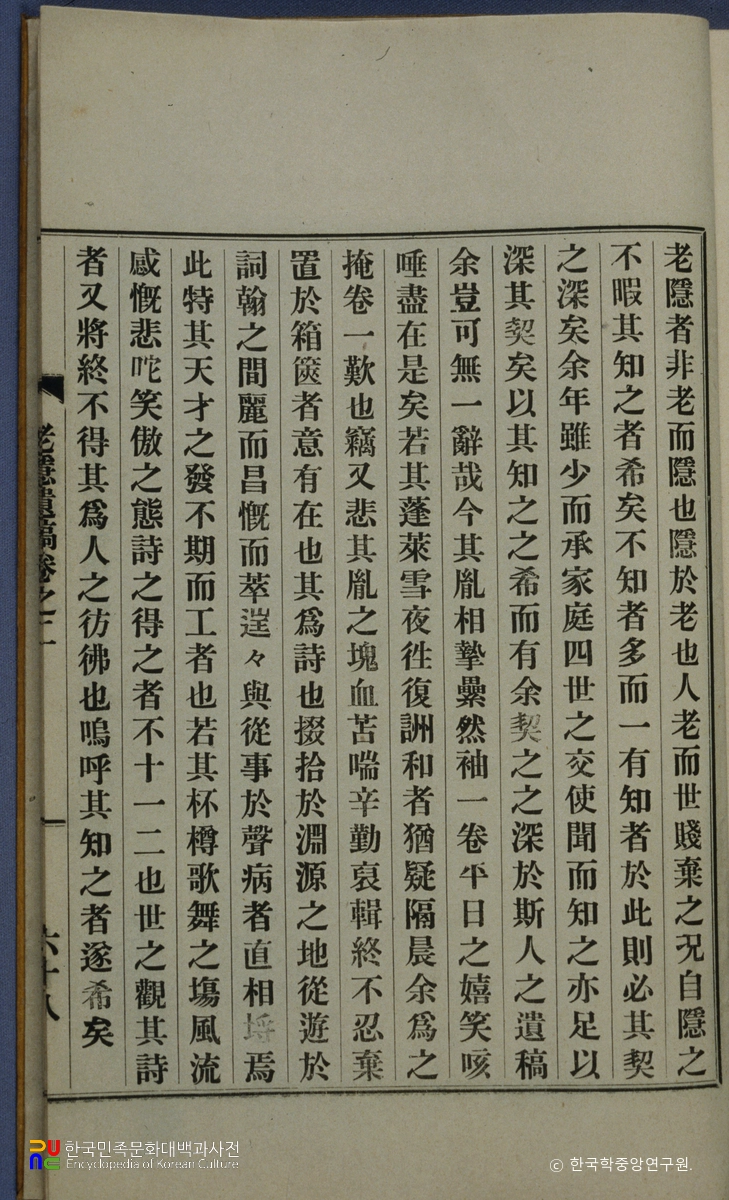 老隱者非老而隱也隱於老也人老而世賤棄之況自隱之
不暇其知之者希矣不知者多而一有知者於此則必其契
之深矣余年雖少而承家庭四世之交使聞而知之亦足以
深其契矣以其知之之希而有余契之之深於斯人之遺稿
余豈可無一辭哉今其胤相摯纍然袖一卷平日之嬉笑咳
唾盡在是矣若其蓬萊雪夜徃復詶和者猶疑隔晨余爲之
掩卷一歎也竊又悲其胤之塊血苦喘辛勤裒輯終不忍棄
置於箱篋者意有在也其爲詩也掇拾於淵源之地從遊於
詞翰之間麗而昌慨而萃逞々與從事於聲病者直相埓焉
此特其天才之發不期而工者也若其杯樽歌舞之塲風流
感慨悲咤笑傲之態詩之得之者不十一二也世之觀其詩
者又將終不得其爲人之彷彿也嗚呼其知之者遂希矣
老隱遺稿卷之二
六十八
한국민족문화대백과사전
Encyclopedia of Korean Culture
© 한국학중앙연구원.